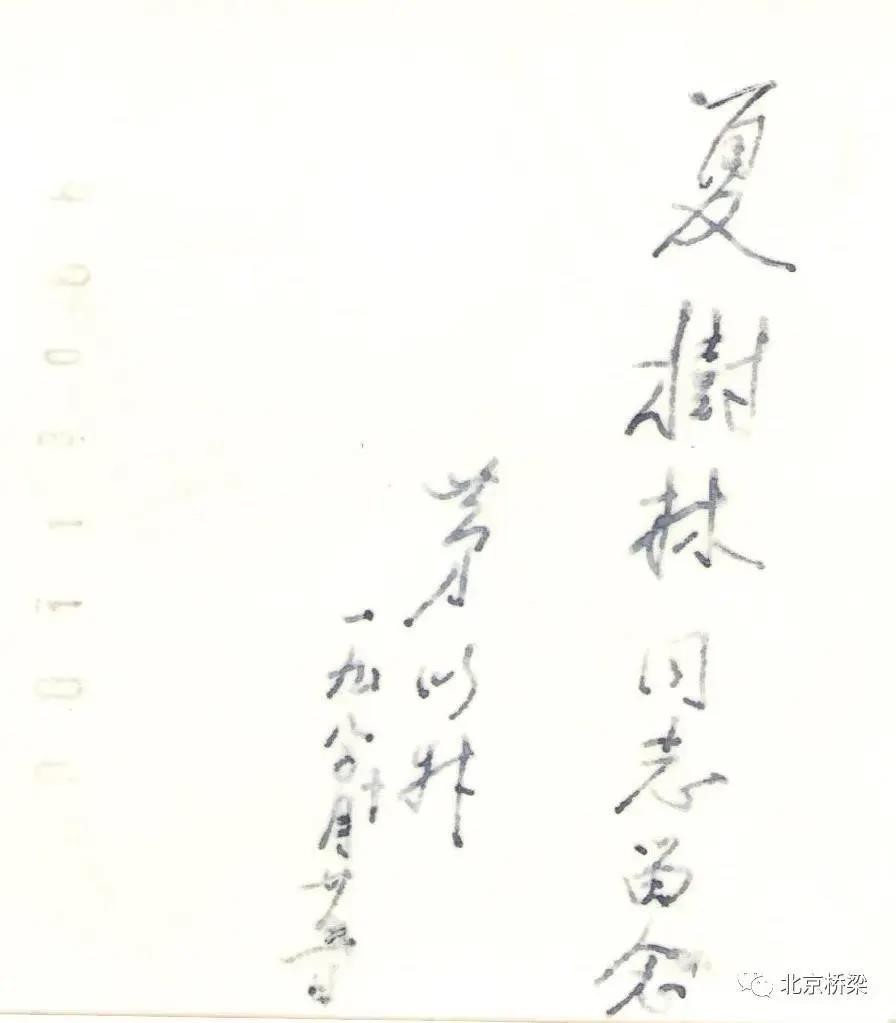 夏樹林同志留念
茅以升
一九八〇十月廿五日
北京桥梁